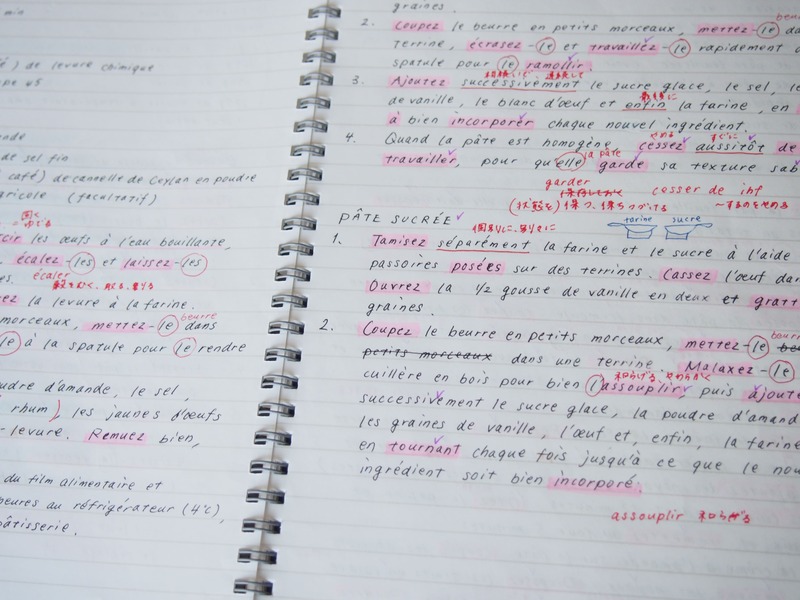 min
) de levure chimique
de sel fin
café) de cannelle de Ceylan en poudre
(facultatif)
les œufs à l'eau bouillante,
écalez-les et laissez-les
écaler
la levure à la farine.
beurre
morceaux, mettez-le dans
le à la spatule pour le rendre
poudre d'amande, le sel,
rhum) les jaunes d'œufs
-levure. Remuez bien,
du film alimentaire et
heures au réfrigérateur (4°C),
pâtisserie.
graines.
2. Coupez le beurre en petits morceaux, mettez-le
terrine, écrasez-le et travaillez-le rapidement
spatule pour le ramollir.
3. Ajoutez successivement le sucre glace, le sel,
最後に
de vanille, le blanc d'œuf et enfin la farine, en
à bien incorporer chaque nouvel ingrédient.
やめる すぐに
4. Quand la pâte est homogène, cessez aussitôt de
la pâte
travailler, pour qu'elle garde sa texture
garder cesser de inf
(状態を)保つ、保ちつづける ~するのをやめる
PÂTE SUCRÉE
farine sucre
1. Tamisez séparément la farine et le sucre à l'aide
passoires posées sur des terrines. Cassez l'œuf
Ouvrez la 1/2 gousse de vanille en deux et
graines.
2. Coupez le beurre en petits morceaux, mettez-le
petits morceaux dans une terrine. Malaxez-le
和らげる、やわらかく
cuillère en bois pour bien l'assouplir, puis
successivement le sucre glace, la poudre
les graines de vanille, l'œuf et, enfin, la farine
en tournant chaque fois jusqu'à ce que le
ingrédient soit bien incorporé.
assouplir 和らげる